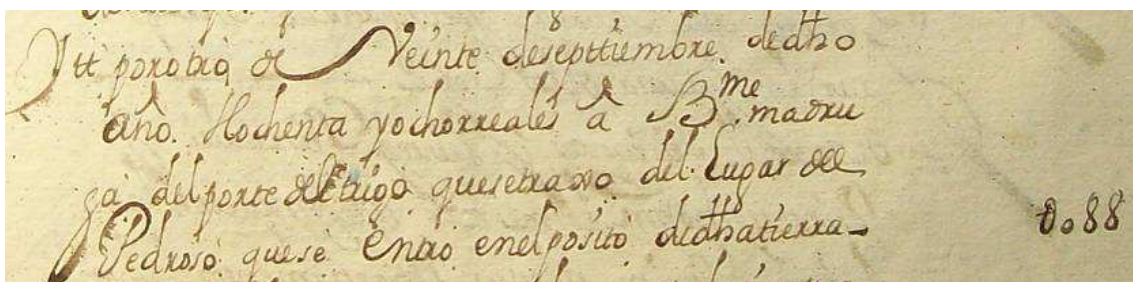 Ytt por otra de Veinte de septtiembre de dho
año. Hochenta y ocho rreales â Bme madru
ga del porte del trigo que se traxo del Lugar del
Pedroso que se Entro en el posito de dha tierra-
0088